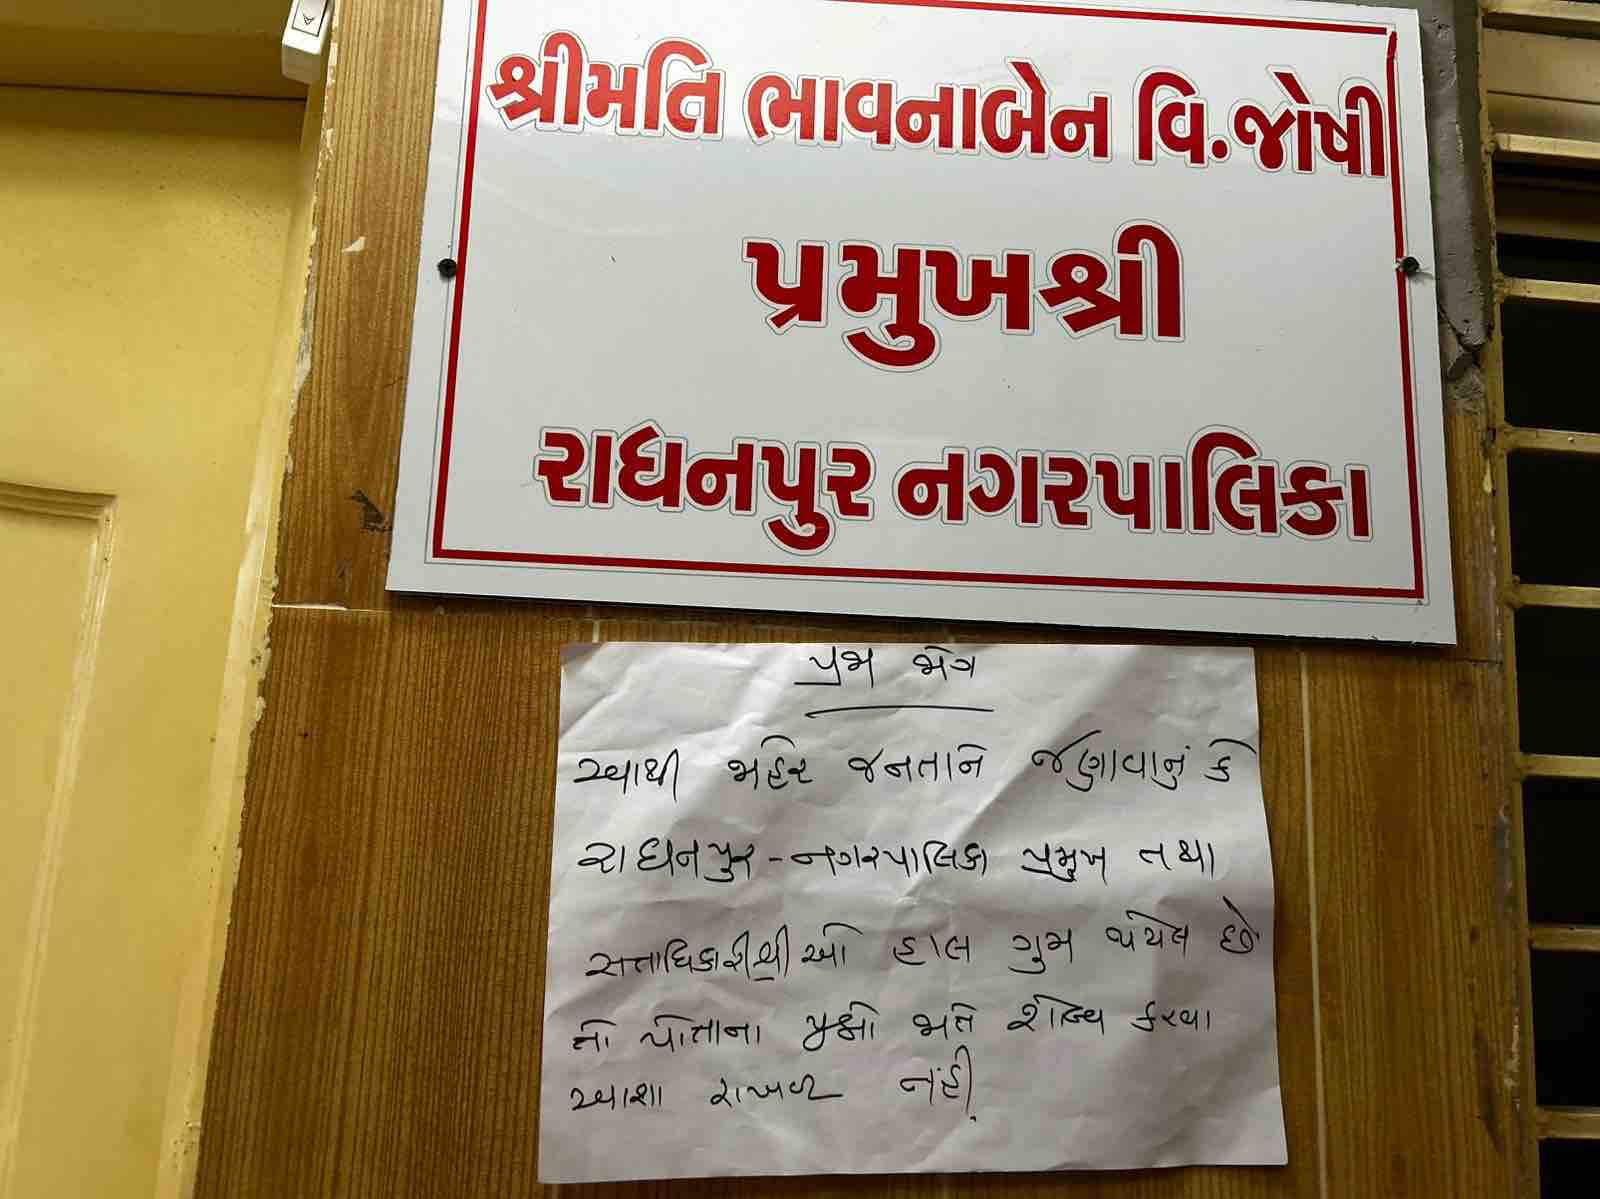 શ્રીમતિ ભાવનાબેન વિ.જોષી
પ્રમુખશ્રી
રાધનપુર નગરપાલિકા
પ્રજા જોગ
આથી જાહેર જનતાને જણાવાનું કે
રાધનપુર - નગરપાલિકા પ્રમુખ તથા
સત્તાધિકારીશ્રીઓ હાલ ગુમ થયેલ છે
તો પોતાના પ્રશ્નો જાતે સોલ્વ કરવા
આશા રાખવી નહી.